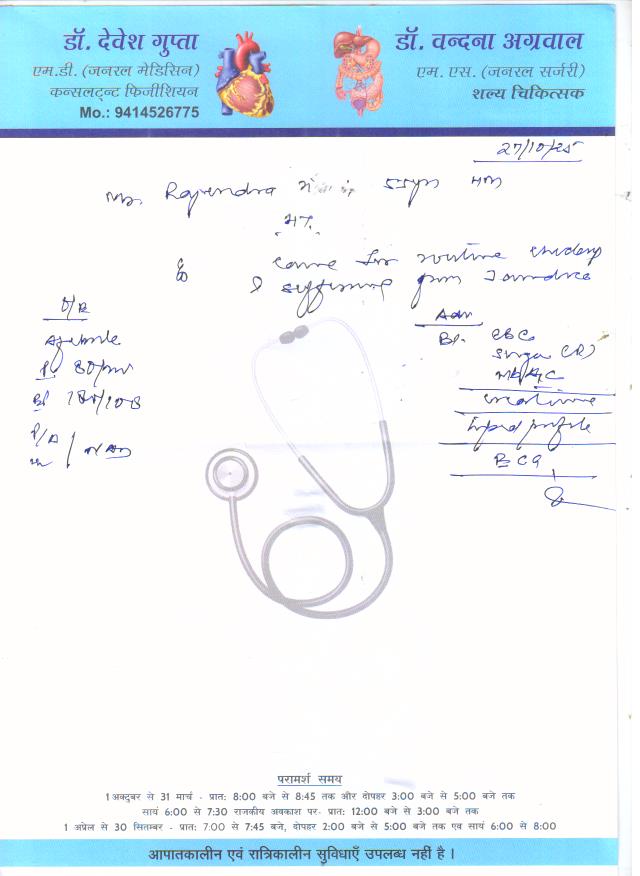 डॉ. देवेश गुप्ता
एम.डी. (जनरल मेडिसिन)
कन्सलट्न्ट फिजीशियन
Mo.: 9414526775
डॉ. वन्दना अग्रवाल
एम. एस. (जनरल सर्जरी)
शल्य चिकित्सक
27/10/25
Mr. Rajendra
came for routine
suffering from Jaundice
O/E
Afebrile
P 80/mt
P/A
NAD
Adv
Bl. CBC
Sugar (R)
HbA1C
creatinine
Lipid profile
ECG
परामर्श समय
1 अक्टुबर से 31 मार्च - प्रात: 8:00 बजे से 8:45 तक और दोपहर 3:00 बजे से 5:00 बजे तक
सायं 6:00 से 7:30 राजकीय अवकाश पर- प्रात: 12:00 बजे से 3:00 बजे तक
1 अप्रेल से 30 सितम्बर - प्रात: 7:00 से 7:45 बजे, दोपहर 2:00 बजे से 5:00 बजे तक एव सायं 6:00 से 8:00
आपातकालीन एवं रात्रिकालीन सुविधाएँ उपलब्ध नहीं है ।